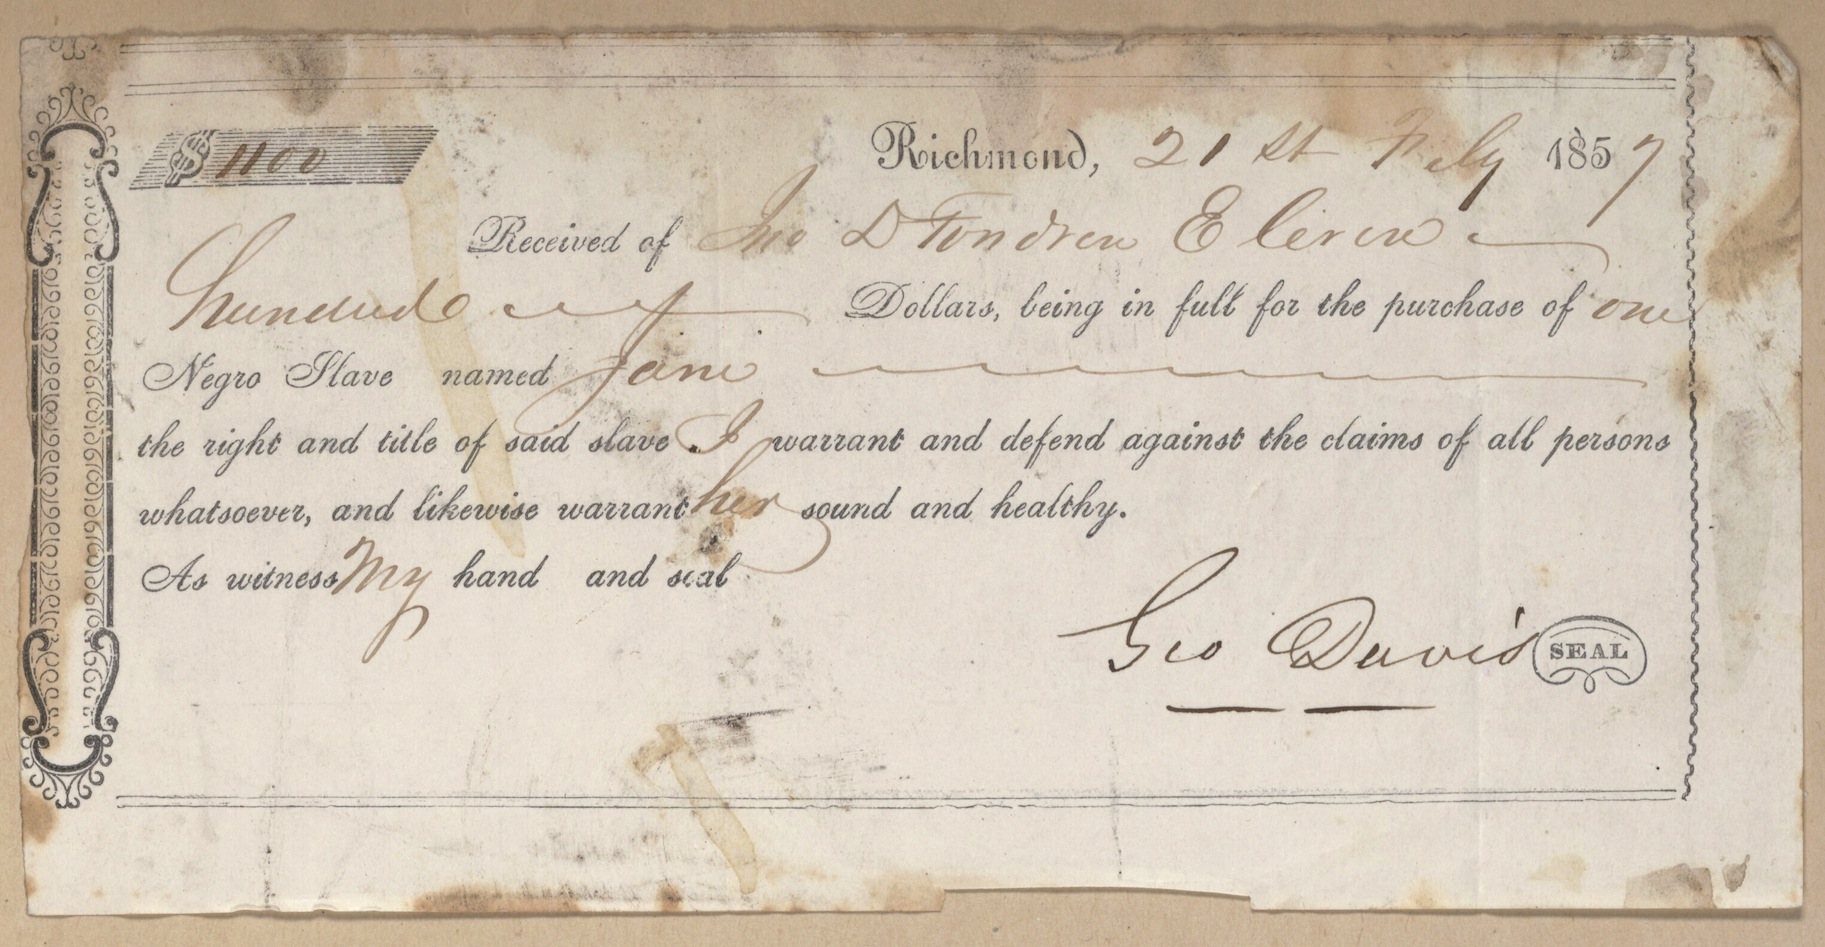 $ 1100
Richmond, 21st Feby 1857
Received of Jno D Fondren Eleven
hundred Dollars, being in full for the purchase of one
Negro Slave named Jane
the right and title of said slave I warrant and defend against the claims of all persons
whatsoever, and likewise warrant her sound and healthy.
As witness My hand and seal
Geo Davis SEAL